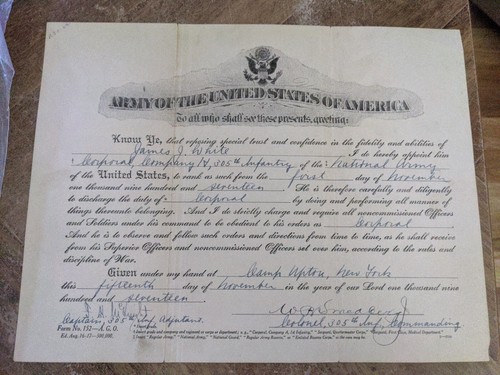 ARMY OF THE UNITED STATES OF AMERICA
To all who shall see these presents, greeting:
Know Ye, that reposing special trust and confidence in the fidelity and abilities of
James J. White I do hereby appoint him
Corporal, Company , 305th Infantry of the National Army
of the United States, to rank as such from the first day of November
one thousand nine hundred and seventeen He is therefore carefully and diligently
to discharge the duty of Corporal by doing and performing all manner of
things thereunto belonging. And I do strictly charge and require all noncommissioned Officers
and Soldiers under his command to be obedient to his orders as Corporal
And he is to observe and follow such orders and directions from time to time, as he shall receive
from his Superior Officers and noncommissioned Officers set over him, according to the rules and
discipline of War.
Given under my hand at Camp Upton, New York
this fifteenth day of November in the year of our Lord one thousand nine
hundred and seventeen
Captain, 305th Inf, Adjutant.
Colonel, 305th Inf, Commanding
Form No. 152—A.G.O.
Ed. Aug. 16-17—500,000.